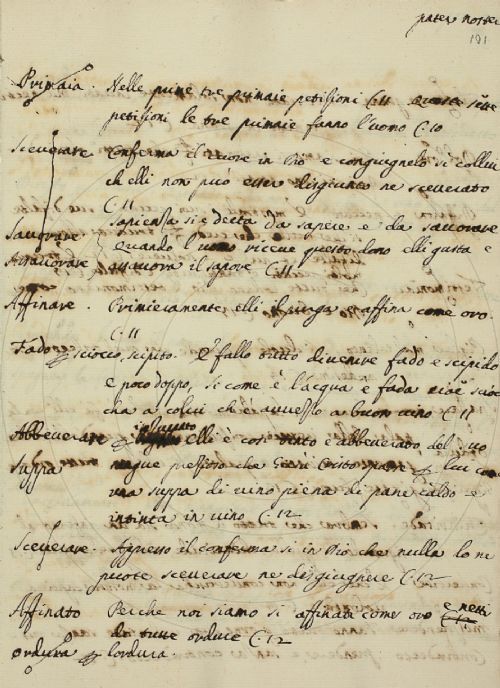 pater noster
191
Primaia. Nelle prime tre primaie petitioni C.11 queste sette
petitioni le tre primaie fanno l'uomo C.10
Sceverare Conferma il cuore in Dio e congiugnelo si collui
ch elli non può esser disgiunto ne sceverato
C.11
Savorare sapientia si è detta da sapere e da savorare
quando l'uomo riceve questo dono elli gusta e
Assavorare assavora il sapore C.11
Affinare. Primieramente elli il purga e affina come oro
C.11
Fado sciocco, scipito. E fallo tutto divenire fado e scipido
e poco doppo, si come è l'acqua è fada cioè scioc
cha a colui ch è avvezzo a buon vino C.11
Abbeverare elli è così tinto e abbeverato del
Suppa sangue pretioso che Giesù Cristo sparse per lui come
una suppa di vino piena di pane caldo e
intinta in vino C.12
Sceverare. Appresso il conferma si in Dio che nulla lo ne
puote sceverare ne desgiugnere C.12
Affinato Perche noi siamo si affinati come oro e netti
di tutte ordure C.12
ordura lordura.